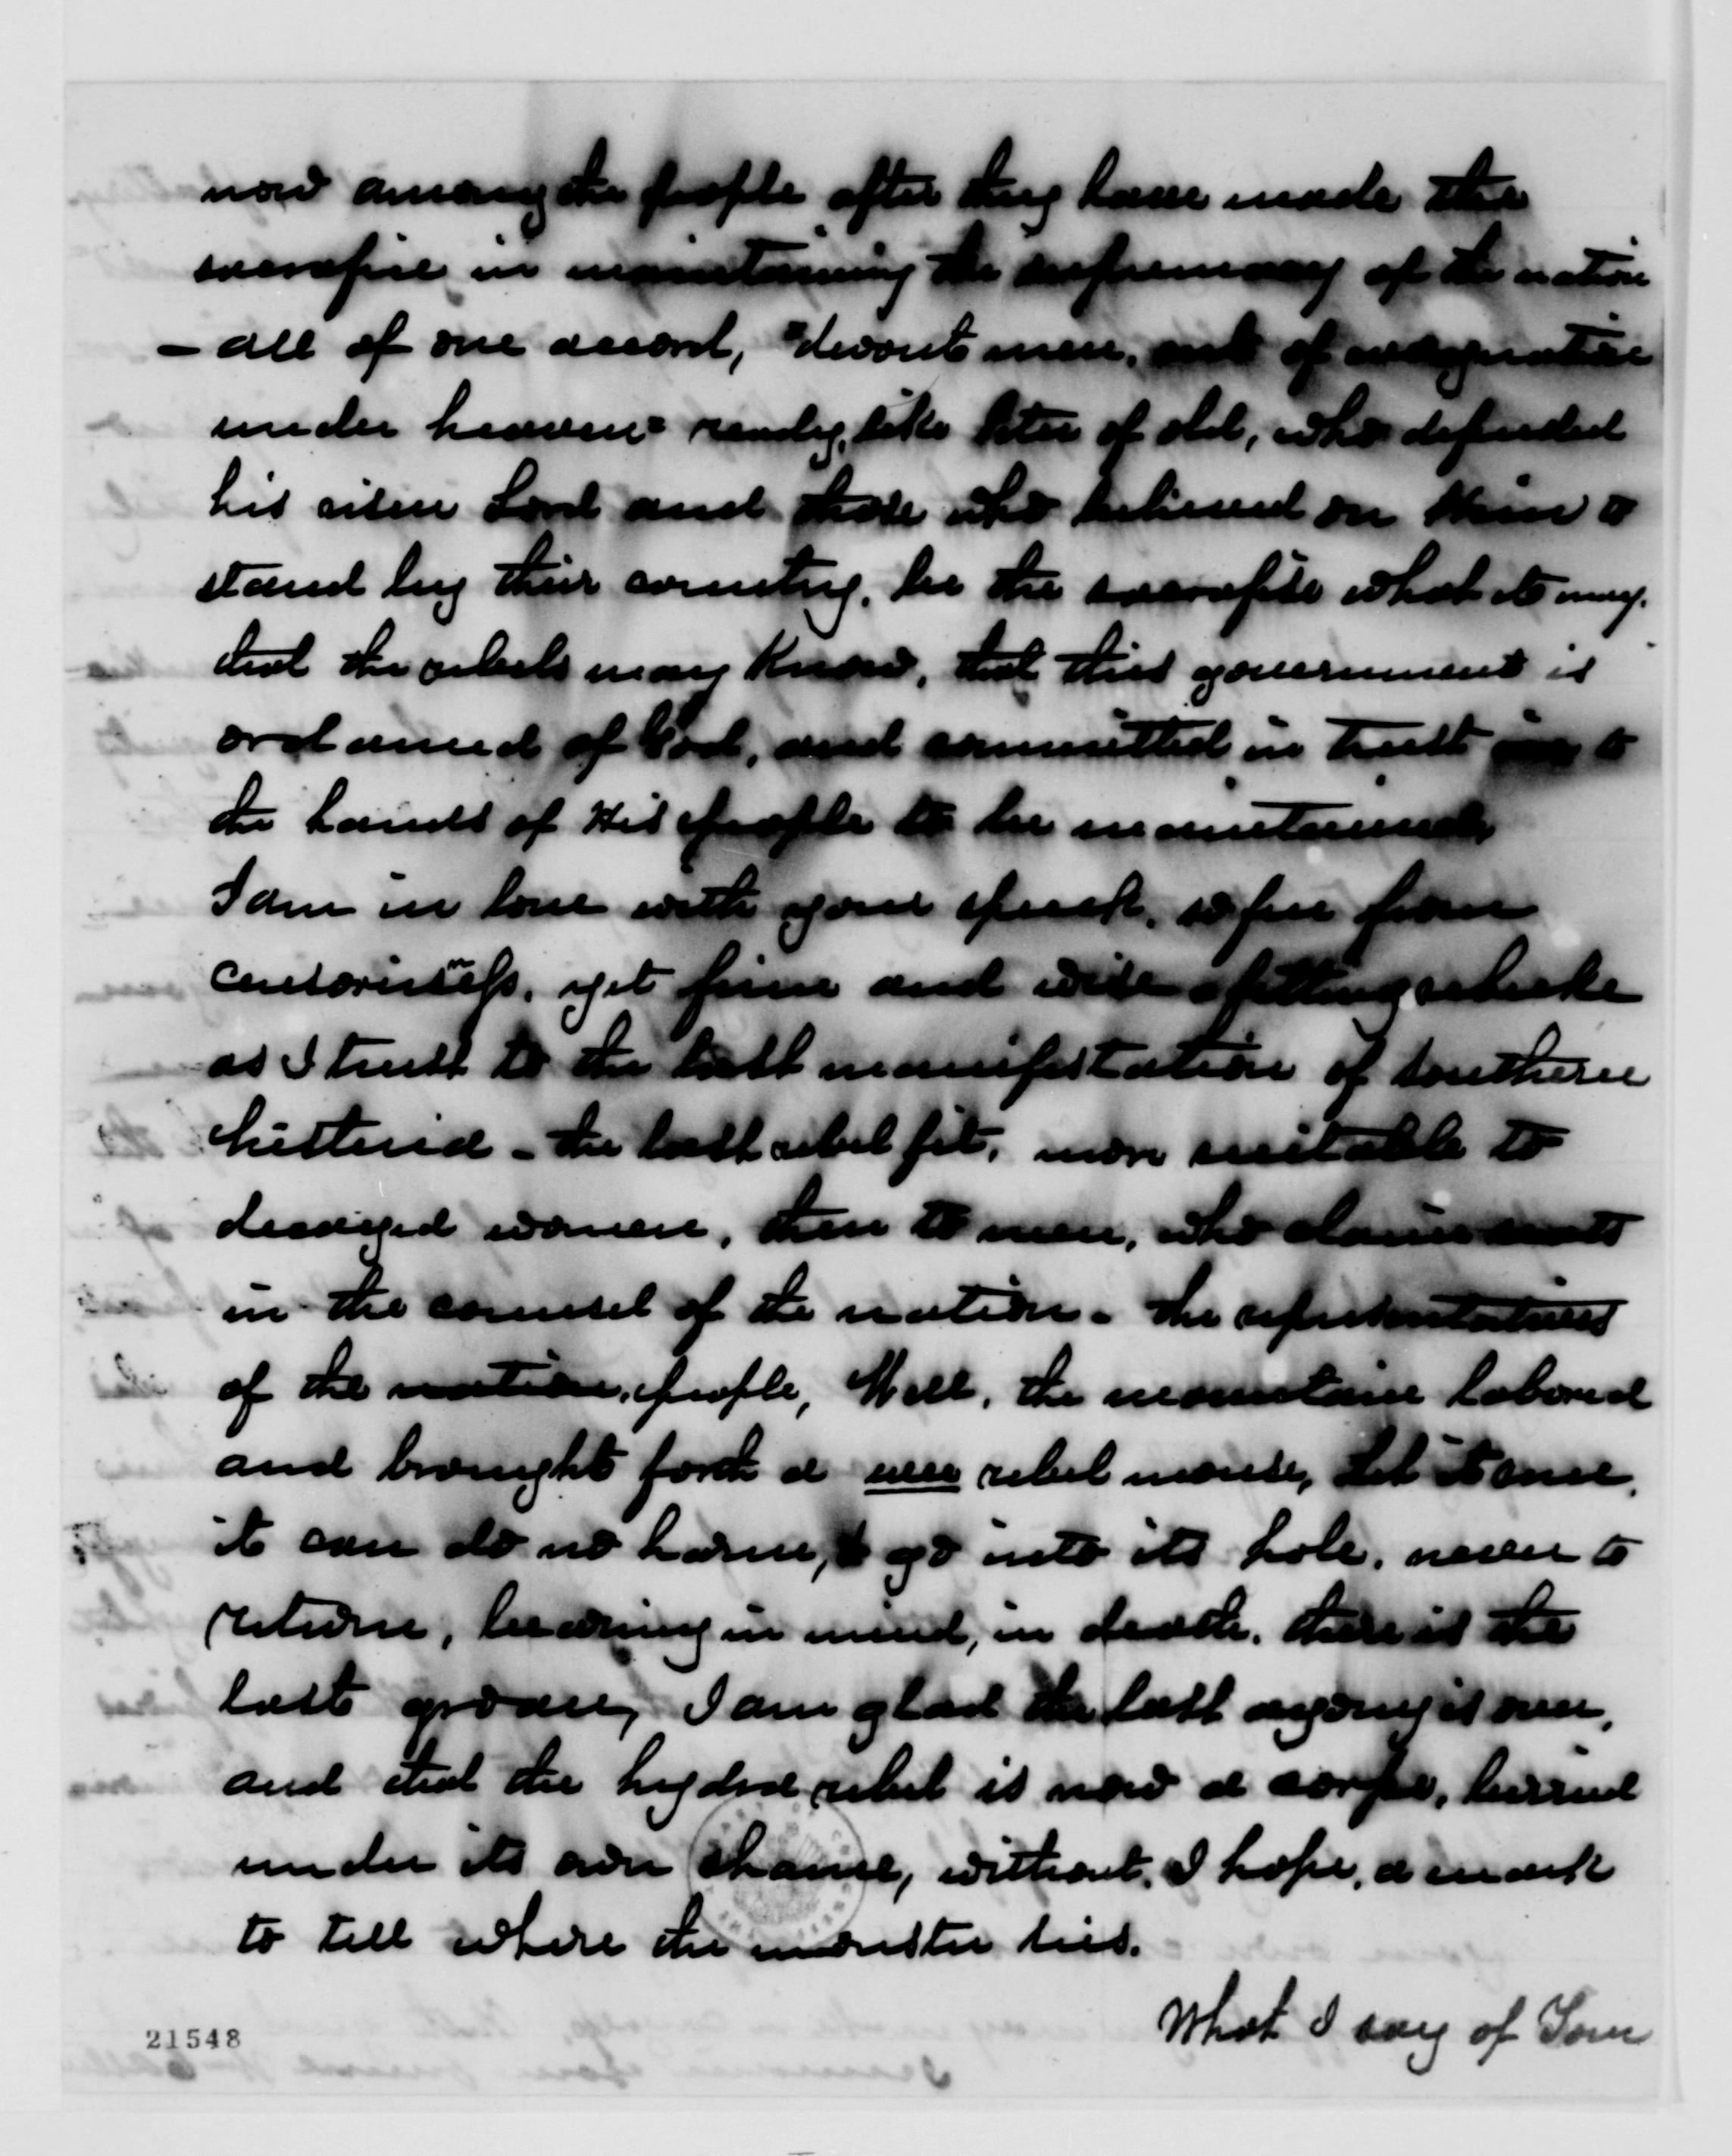 now among the people after they have made the
sacrafise in maintaining the supremacy of the nation
- all of one accord, "devout men, out of every nation
under heaven" ready, like Peter of old, who defended
his risen Lord and those who believed on Him to
stand by their country, be the sacrafise what it may.
that the rebels may know, that this government is
ordained of God, and committed in trust to
the hands of His people to be maintained,
I am in love with your speech, so free from
censoriusness, yet firm and wise a fitting rebuke
as I trust to the last manifestation of Southern
histeria - the last rebel fit, more suitable to
deseased women, then to men, who claim seats
in the counsel of the nation - the representatives
of the nation, people, Well, the mountain labored
and brought forth a wee rebel mouse, Let it come,
it can do no harm, & go into its hole, never to
return, bearing in mind, in death, there is the
last groan, I am glad the last agony is over,
and that the hydra rebel is now a corps, burried
under its own shame, without, I hope, a mark
to tell where the monster lies.
What I say of Tom
21548